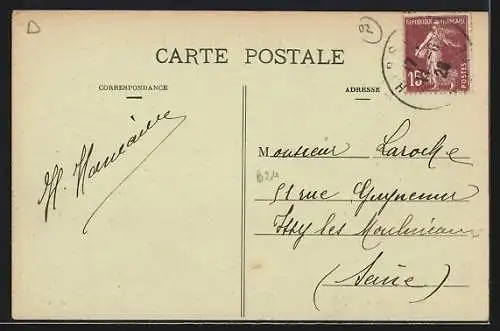 D
92
CARTE POSTALE
CORRESPONDANCE
ADRESSE
REPUBLIQUE FRANÇAISE
15c
POSTES
Monsieur Laroche
B24
51 rue
Issy les Moulineaux
(Seine)